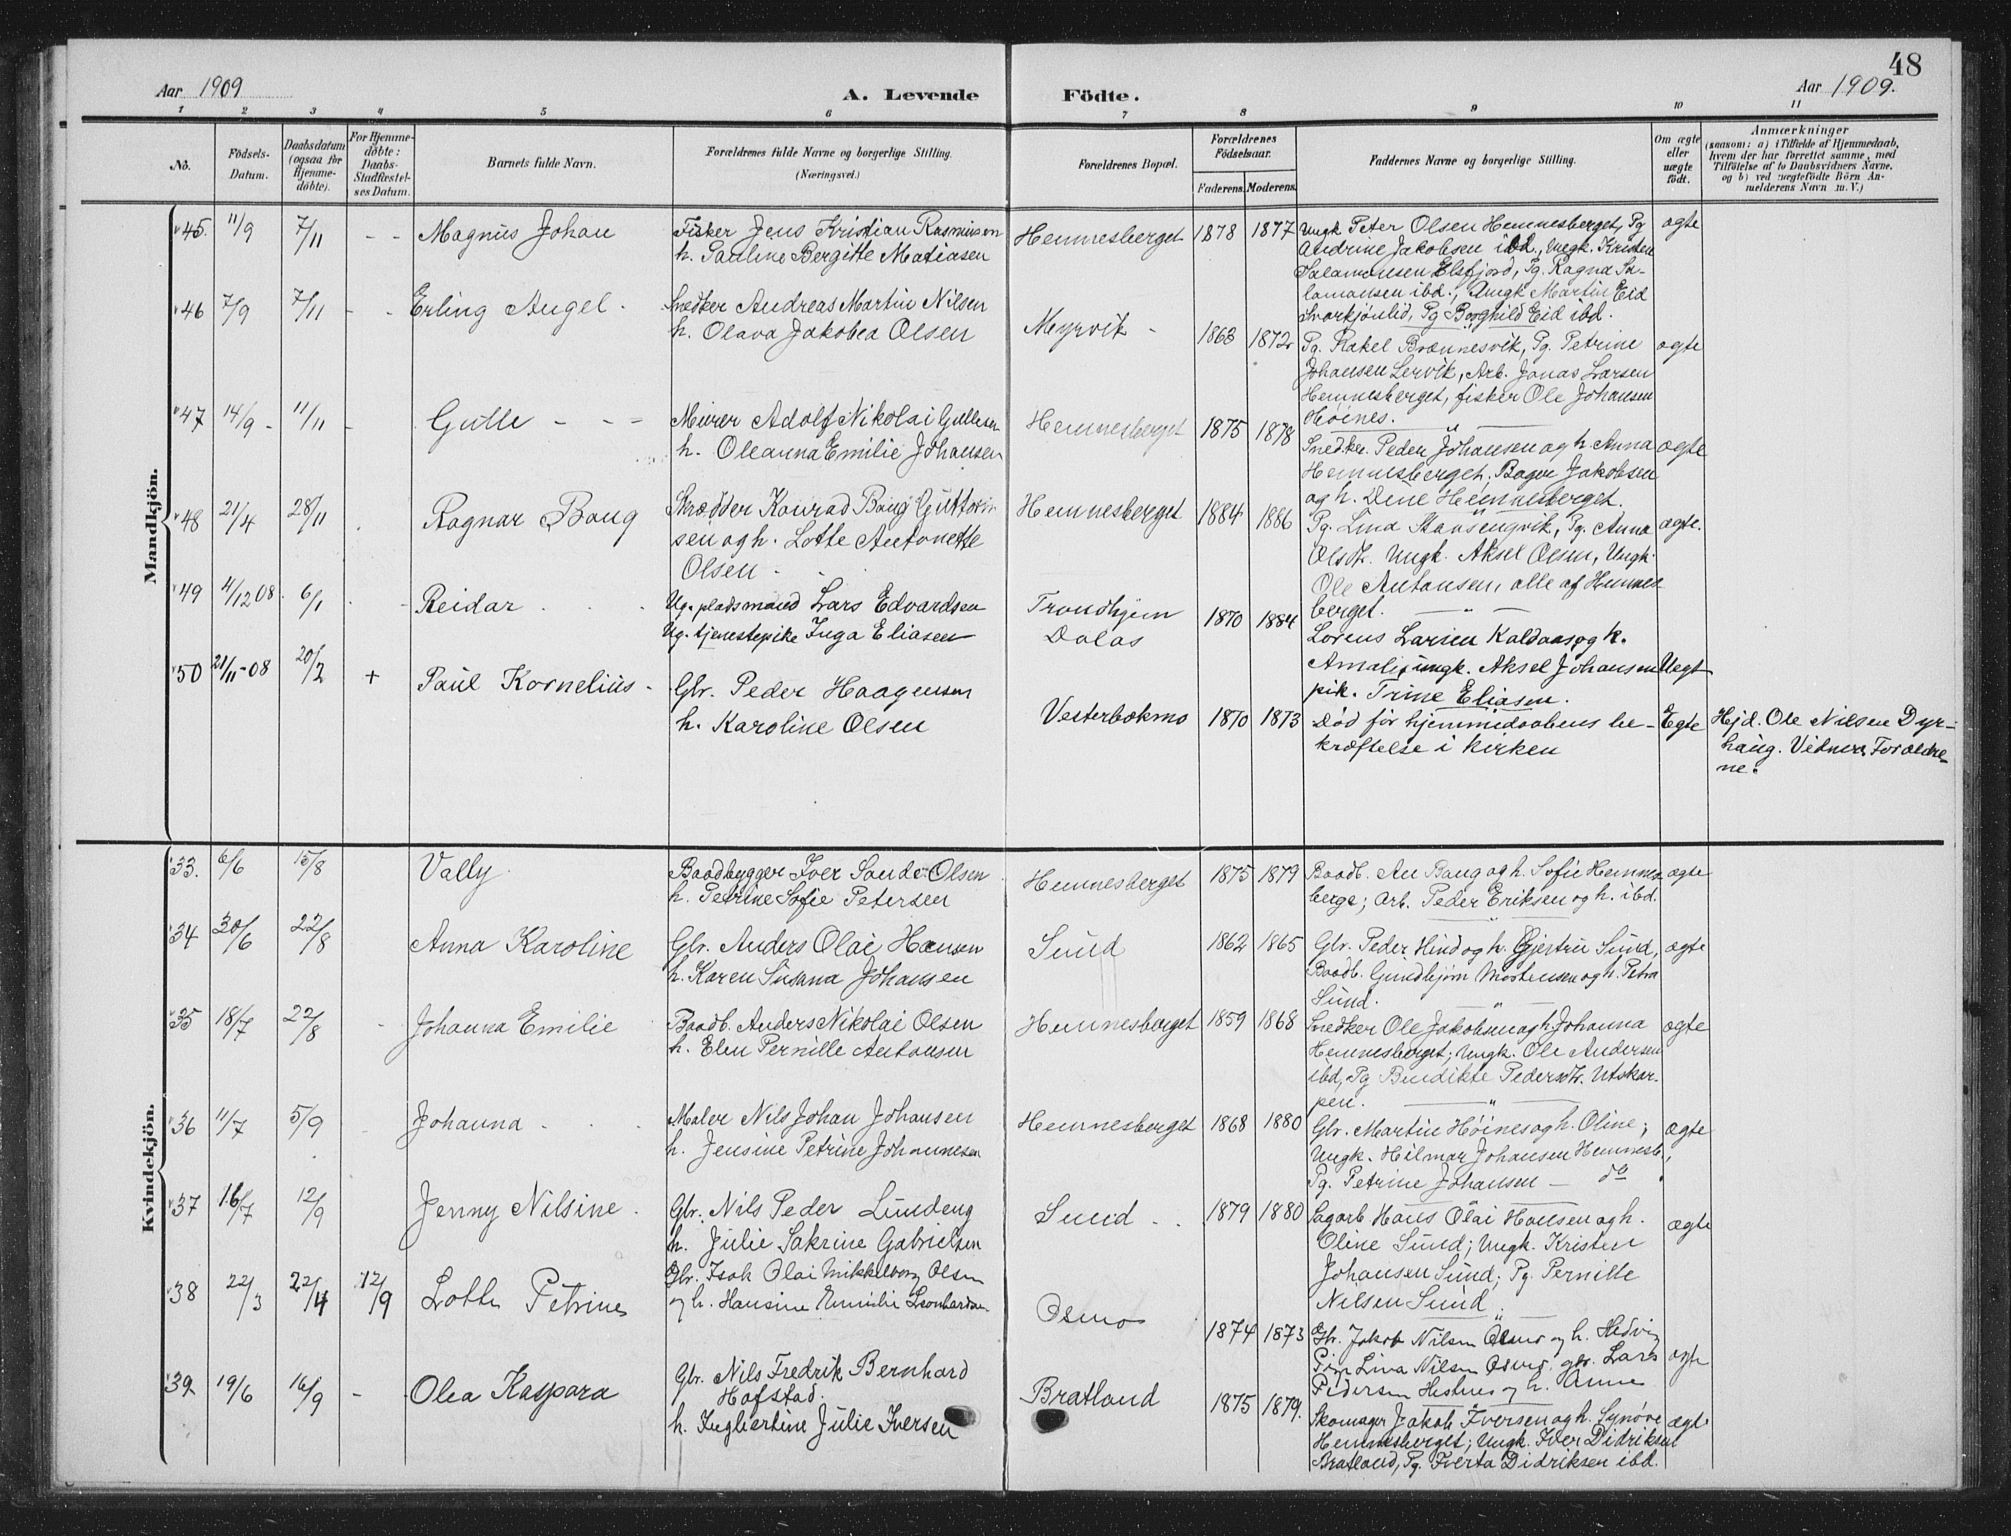 48
Aar 1909
A. Levende Födte.
Aar 1909.
1 2 3 4 5 6 7 8 9 10 11
No.
Födsels-Datum.
Daabsdatum (ogsaa for Hjemmedöbte).
For Hjemmedöbte: Daabs-Stadfæstelses Datum.
Barnets fulde Navn.
Forældrenes fulde Navne og borgerlige Stilling.
(Næringsvei.)
Forældrenes Bopæl.
Forældrenes Födselsaar.
Faderens. Moderens.
Faddernes Navne og borgerlige Stilling.
Om ægte eller uægte födt.
Anmærkninger
(saasom: a) i Tilfælde af Hjemmedaab, hvem der har forrettet samme, med Tilföielse af to Daabsvidners Navne, og b) ved uegtefödte Börn Anmelderens Navn m. V.)
Mandkjön.
45. 11/9 7/11 - - Magnus Johan
Fisker Jens Kristian Rasmussen
h. Pauline Bergitte Matiasen
Hemnesberget 1878 1877
Ungk Peter Olsen Hemnesberget, Pg
Andrine Jakobsen ibd., Ungk. Kristen
Salamonsen Elsfjord, Pg. Ragna Sa-
lamonsen ibd., Ungk Martin Eid
Pg Borghild Eid ibd.
ægte
46 7/9 7/11 - - Erling Angel -
Snedker Andreas Martin Nilsen
h. Olava Jakobea Olsen
Myrvik - 1863 1872
Pg. Rakel Brænnesvik, Pg. Petrine
Johansen Lervik, Arb. Jonas Larsen
Hemnesberget, fisker Ole Johansen
Höines.
ægte
47 14/9 - 11/11 - Gulle - - =
Murer Adolf Nikolai Gullesen
h. Oleanna Emilie Johansen
Hemnesberget 1875 1878
Snedker Peder Johansen og h. Anna
Hemnesberget, Bager Jakobsen
og h. Dene Hemnesberget.
ægte
48 21/4 28/11 Ragnar Bang
Skrædder Konrad Bang Guttorm
sen og h. Lotte Antonette
Olsen
Hemnesberget 1884 1886
Pg. Lina Pg. Anna
Olsdt. Ungk. Aksel Olsen, Ungk.
Ole Antonsen, alle af Hemnes-
berget.
ægte.
49 4/12 08. 6/1 - Reidar
Ug. pladsmand Lars Edvardsen
Ug. tjenestepike Inga Eliasen
Trondhjem
Dalas
1870 1884
Lorens Larsen Kaldaas og h.
Amalie, ungk. Aksel Johansen
pik. Trine Eliasen.
Uegt
50 21/11-08 20/2 + Paul Kornelius -
Gbr. Peder Haagensen
h. Karoline Olsen
Vesterbækmo 1870 1873
Død før hjemmedaabens be-
kræftelse i kirken
Egte
Hjd. Ole Nilsen Dyr-
haug. Vidner: Forældre-
ne.
Kvindekjön.
33. 6/6 15/8 Vally
Baadbygger Iver Sander Olsen
h. Petrine Sofie Petersen
Hemnesberget 1875 1879
Baadb. An Bang og h. Sofie Hemnes-
berge; Arb. Peder Eriksen og h. ibd.
ægte
34 20/6 22/8 Anna Karoline
Gbr. Anders Olai Hansen
h. Karen Susana Johansen
Sund 1862 1865
Gbr. Peder Hind og h. Gjertru Sund,
Baadb. Gundbjørn Mortensen og h. Petra
Sund.
ægte
35 18/7 22/8 - Johanna Emilie
Baadb. Anders Nikolai Olsen
h. Elen Pernille Antonsen
Hemnesberget 1859 1868
Snedker Ole Jakobsen og h Johanna
Hemnesberget; Ungk. Ole Andersen
ibd, Pg Bendikte Pedersdt. Utskar-
pen.
ægte
36 11/7 5/9 Johanna
Maler Nils Johan Johansen
h. Jensine Petrine Johannesen
Hemnesberget 1868 1880
Gbr. Martin Höines og h. Oline;
Ungk. Hilmar Johansen Hemnesb.,
Pg. Petrine Johansen - do
ægte
37 16/7 12/9 Jenny Nilsine.
Gbr. Nils Peder Lundeng
h. Julie Sakrine Gabrielsen
Sund 1879 1880
Sagarb Hans Olai Hansen og h.
Oline Sund; Ungk. Kristen
Johansen Sund; Pg. Pernille
Nilsen Sund
ægte
38 22/3 22/4 12/9 Lotte Petrine
Gbr. Isak Olai Mikkelborg Olsen
og h. Hansine Emilie Leonhardsen
Osmo 1874 1873
Gbr. Jakob Nilsen Osmo og h. Hedvig
Pige Lina Nilsen gbr. Lars
Pedersen og h. Anne
ægte
39 19/6 16/9 - Olea Kaspara
Gbr. Nils Fredrik Bernhard
Hofstad.
h. Ingbertine Julie Iversen
Bratland 1875 1879.
Skomager Jakob Iversen og h. Synøve
Hemnesberget; Ungk. Iver Didriksen
Bratland, Pg. Iverta Didriksen ibd.
ægte